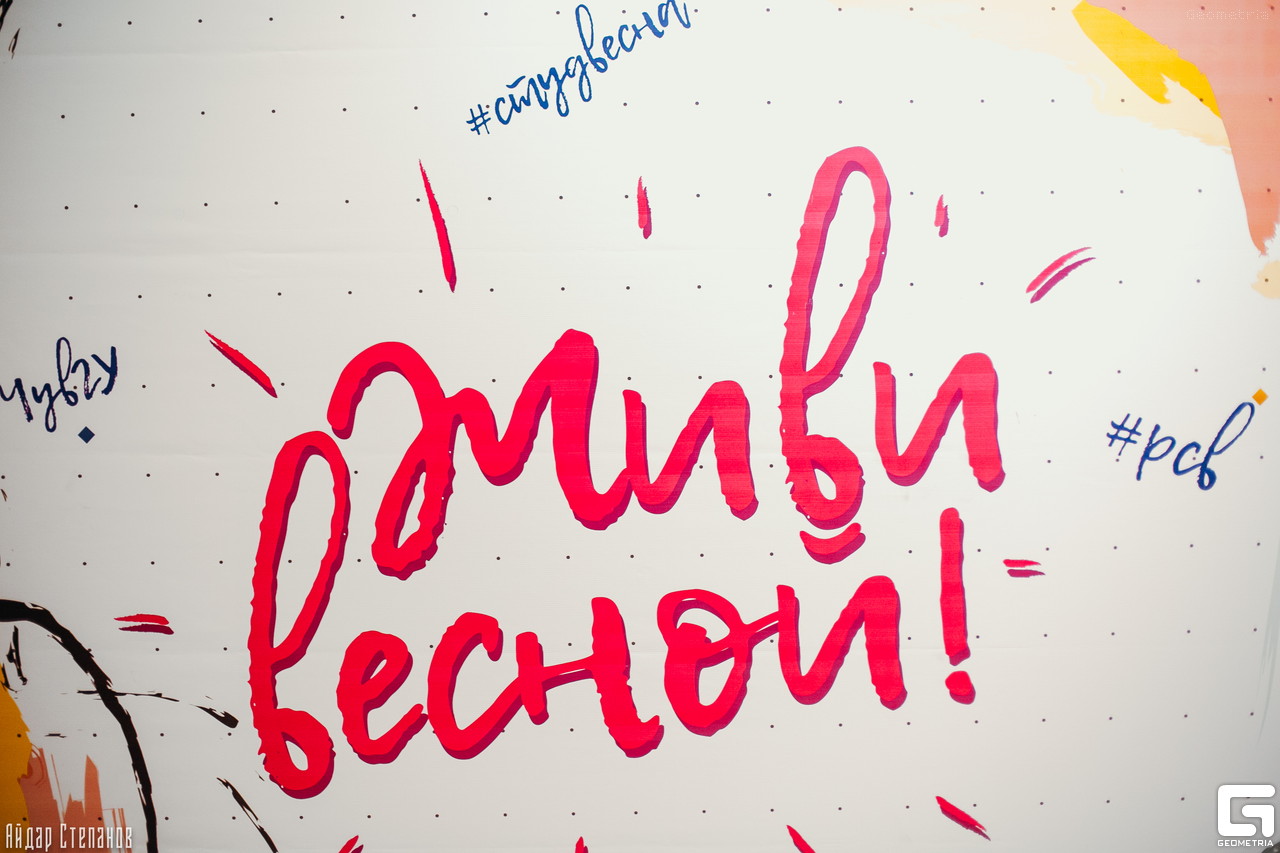 Geometria
#студвесна
Живи
весной!
ЧувГУ
#рсв
Айдар Степанов
GEOMETRIA